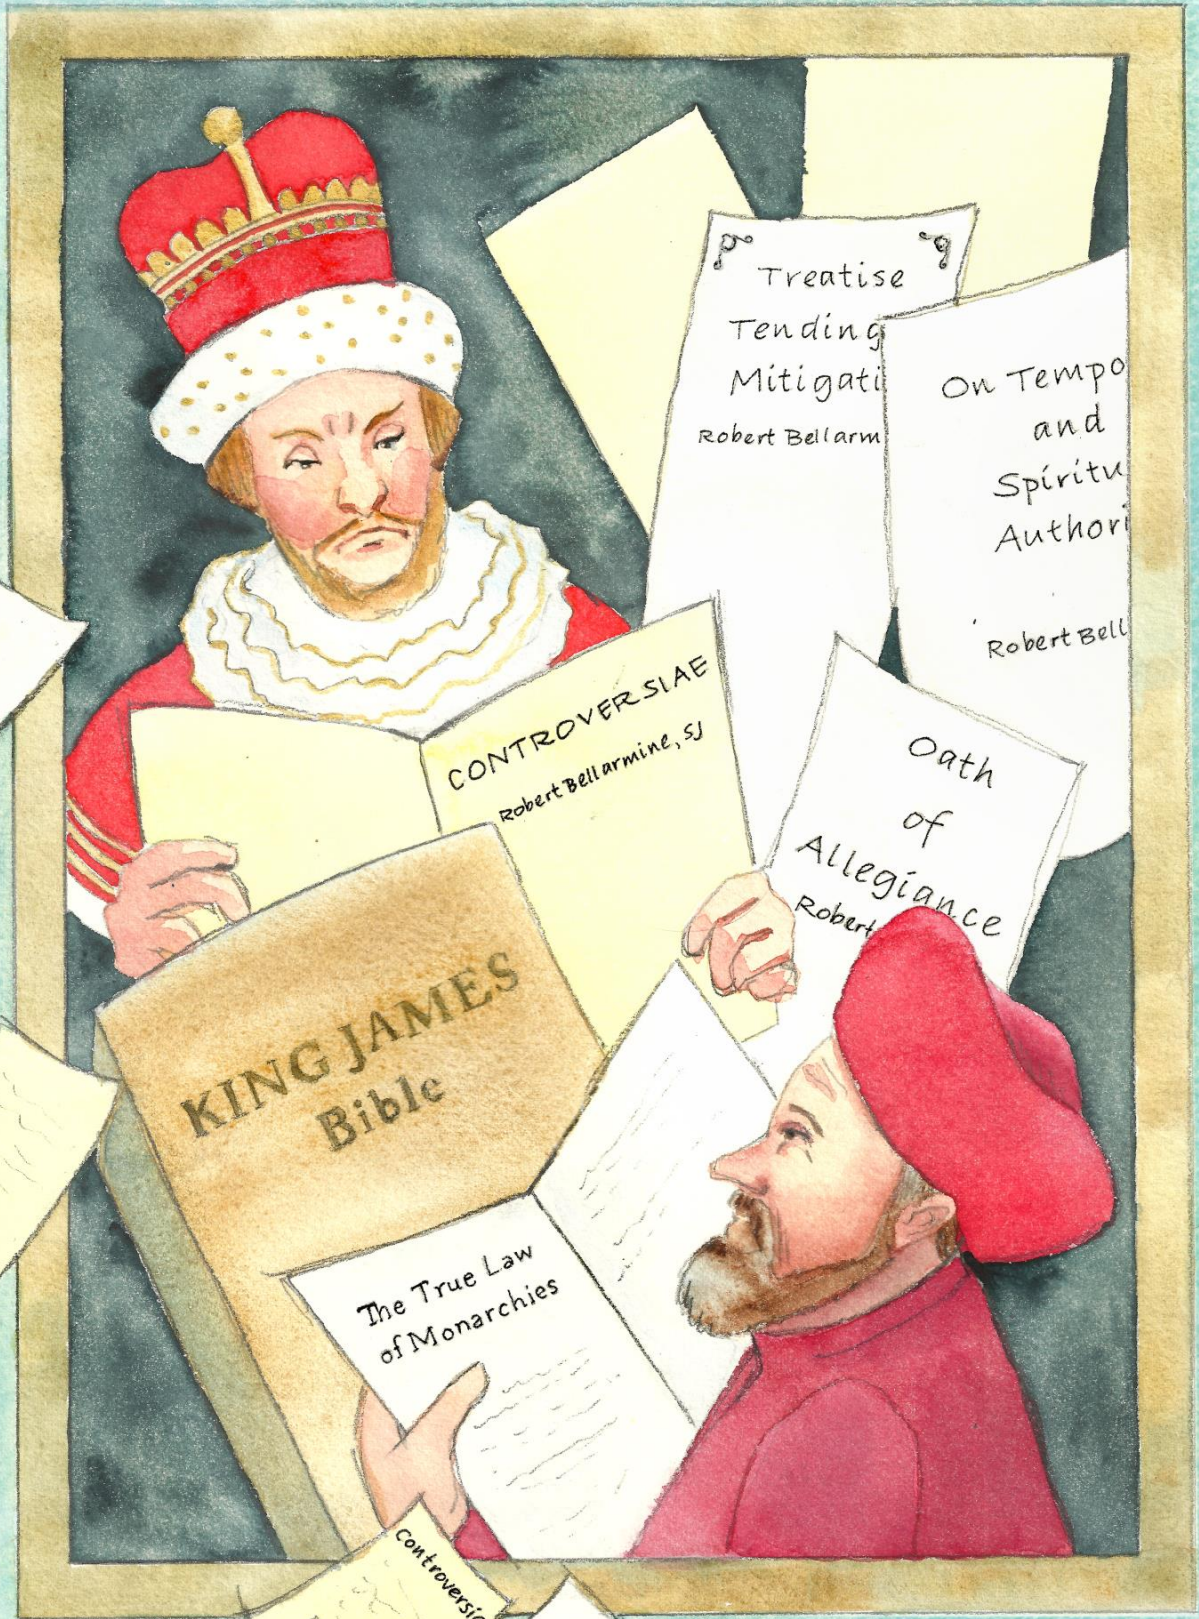 Treatise
Tending
Mitigati
Robert Bellarm
On Tempo
and
Spiritu
Authori
Robert Bell
CONTROVERSIAE
Robert Bellarmine, SJ
Oath
of
Allegiance
Robert
KING JAMES
Bible
The True Law
of Monarchies
Controversia